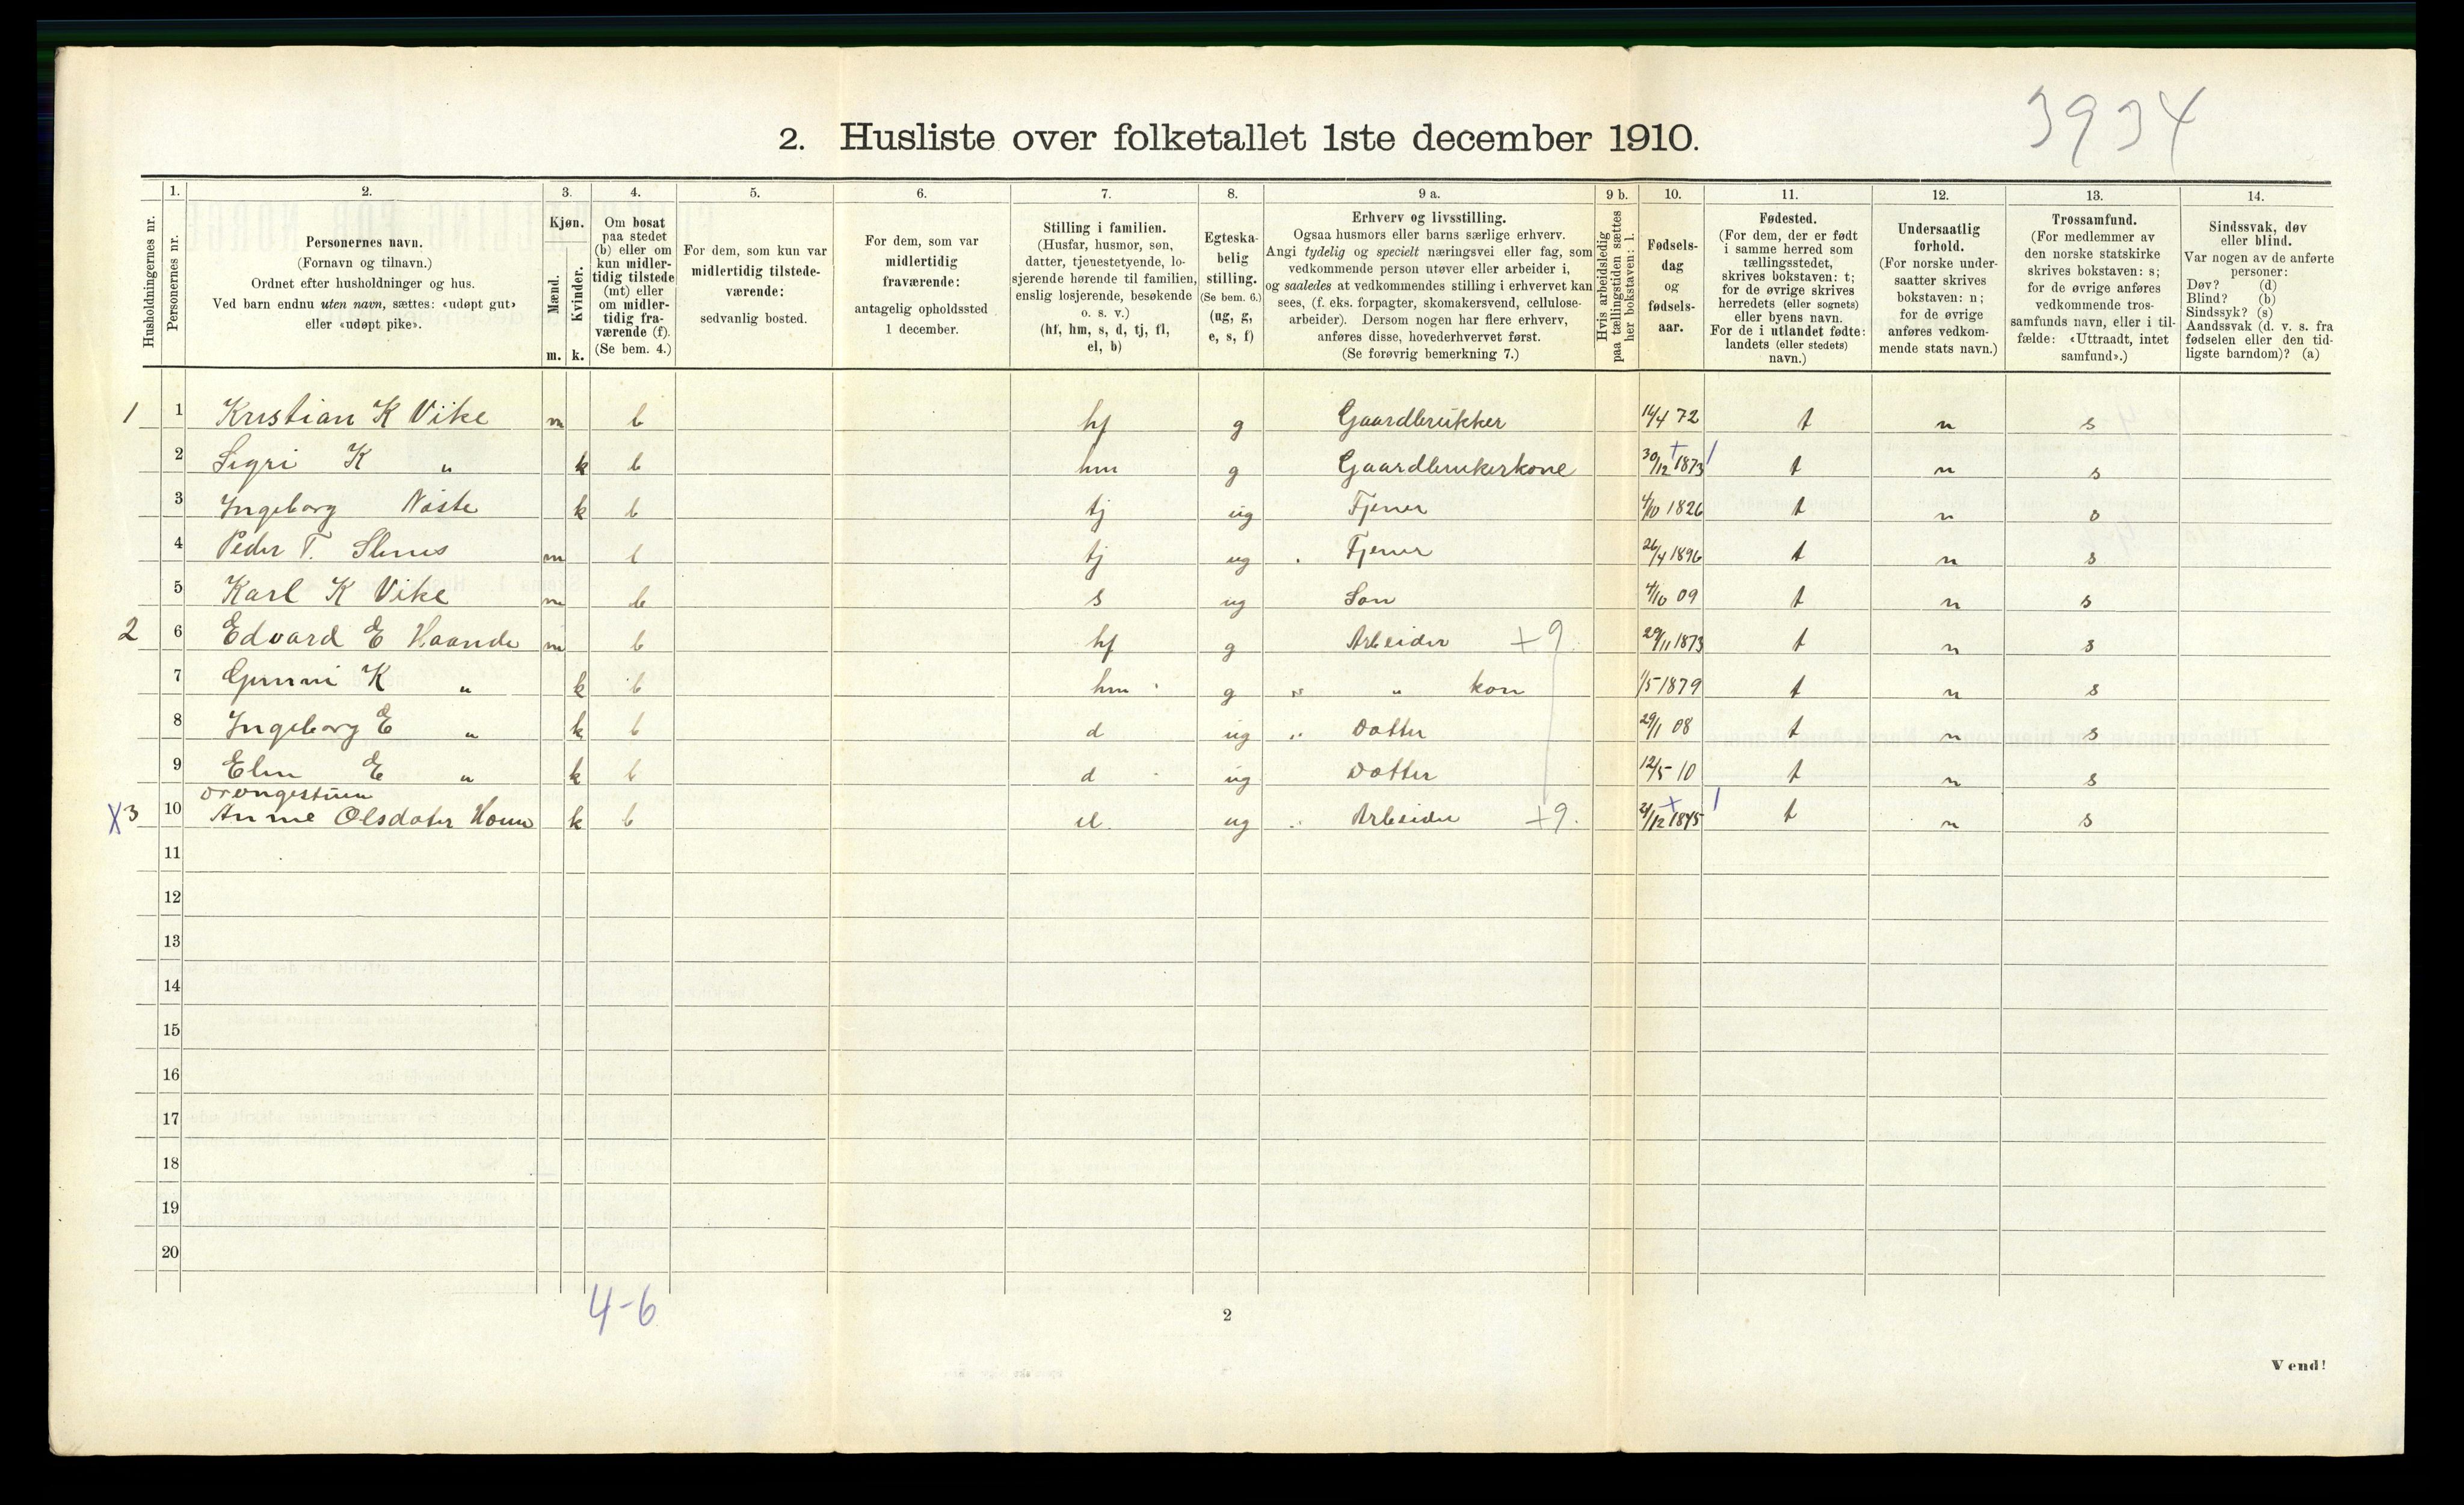 3934
2. Husliste over folketallet 1ste december 1910.
1. 2. 3. 4. 5. 6. 7. 8. 9 a. 9 b. 10. 11. 12. 13. 14.
Husholdningernes nr.
Personernes nr.
Personernes navn.
(Fornavn og tilnavn.)
Ordnet efter husholdninger og hus.
Ved barn endnu uten navn, sættes: «udøpt gut»
eller «udøpt pike».
Kjøn.
Mænd.
Kvinder.
m. k.
Om bosat
paa stedet
(b) eller om
kun midler-
tidig tilstede
(mt) eller
om midler-
tidig fra-
værende (f).
(Se bem. 4.)
For dem, som kun var
midlertidig tilstede-
værende:
sedvanlig bosted.
For dem, som var
midlertidig
fraværende:
antagelig opholdssted
1 december.
Stilling i familien.
(Husfar, husmor, søn,
datter, tjenestetyende, lo-
sjerende hørende til familien,
enslig losjerende, besøkende
o. s. v.)
(hf, hm, s, d, tj, fl,
el, b)
Egteska-
belig
stilling.
(Se bem. 6.)
(ug, g,
e, s, f)
Erhverv og livsstilling.
Ogsaa husmors eller barns særlige erhverv.
Angi tydelig og specielt næringsvei eller fag, som
vedkommende person utøver eller arbeider i,
og saaledes at vedkommendes stilling i erhvervet kan
sees, (f. eks. forpagter, skomakersvend, cellulose-
arbeider). Dersom nogen har flere erhverv,
anføres disse, hovederhvervet først.
(Se forøvrig bemerkning 7.)
Hvis arbeidsledig
paa tællingstiden sættes
her bokstaven: l.
Fødsels-
dag
og
fødsels-
aar.
Fødested.
(For dem, der er født
i samme herred som
tællingsstedet,
skrives bokstaven: t;
for de øvrige skrives
herredets (eller sognets)
eller byens navn.
For de i utlandet fødte:
landets (eller stedets)
navn.)
Undersaatlig
forhold.
(For norske under-
saatter skrives
bokstaven: n;
for de øvrige
anføres vedkom-
mende stats navn.)
Trossamfund.
(For medlemmer av
den norske statskirke
skrives bokstaven: s;
for de øvrige anføres
vedkommende tros-
samfunds navn, eller i til-
fælde: «Uttraadt, intet
samfund».)
Sindssvak, døv
eller blind.
Var nogen av de anførte
personer:
Døv? (d)
Blind? (b)
Sindssyk? (s)
Aandssvak (d. v. s. fra
fødselen eller den tid-
ligste barndom)? (a)
1 1 Kristian K Vike m b hf g Gaardbrukker 14/4 72 t n s
2 Sigri K " k b hm g Gaardbrukerkone 30/12 1873 t n s
3 Ingeborg k b tj ug Tjener 4/10 1826 t n s
4 Peder T. m b tj ug Tjener 26/4 1896 t n s
5 Karl K Vike m b s ug Søn 4/10 09 t n s
2 6 Edvard E Haande m b hf g Arbeider +9. 29/11 1873 t n s
7 Gunni K " k b hm g " kon 1/5 1879 t n s
8 Ingeborg E " k b d ug Dotter 29/1 08 t n s
9 Elen E " k b d ug Dotter 12/5 10 t n s
X3 10 Anne Olsdater k b el ug Arbeider +9. 21/12 1845 t n s
11
12
13
14
15
16
17
18
19
20
4-6
2
Vend!